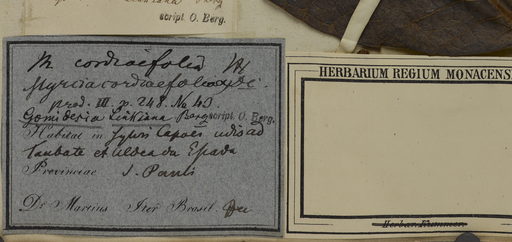 script. O. Berg.
M. cordiaefolia
Myrcia cordiaefolia DC.
prod. III. p. 248. No 40.
Gomidesia Linkiana Berg script. O. Berg.
Habitat in udis ad
Taubate et Aldea da Escada
Provinciae S. Pauli
Dr. Martius Iter Brasil.
HERBARIUM REGIUM MONACENS
Herbar. Kummer.